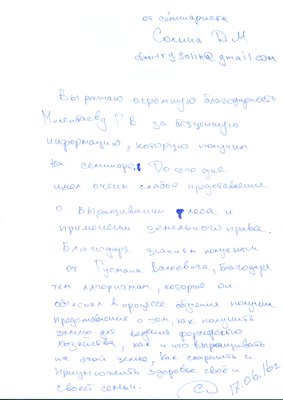 от семинариста
Солина Д.М
dmitrysolin@gmail.com
Выражаю огромную благодарность
Г В за бесценную
информацию, которую получил
на семинаре. До сего дня
имел очень слабое представление
о выращивании леса и
применении земельного права.
Благодаря знаниям полученым
от Густава Валеевича, благодаря
тем алгоритмам, которые он
объяснил в процессе обучения получил
представление о том, как получить
землю для ведения фермерского
хозяйства, как и что выращивать
на этой земле, как сохранить и
приумножить здоровье своё и
своей семьи.
17.06.16г